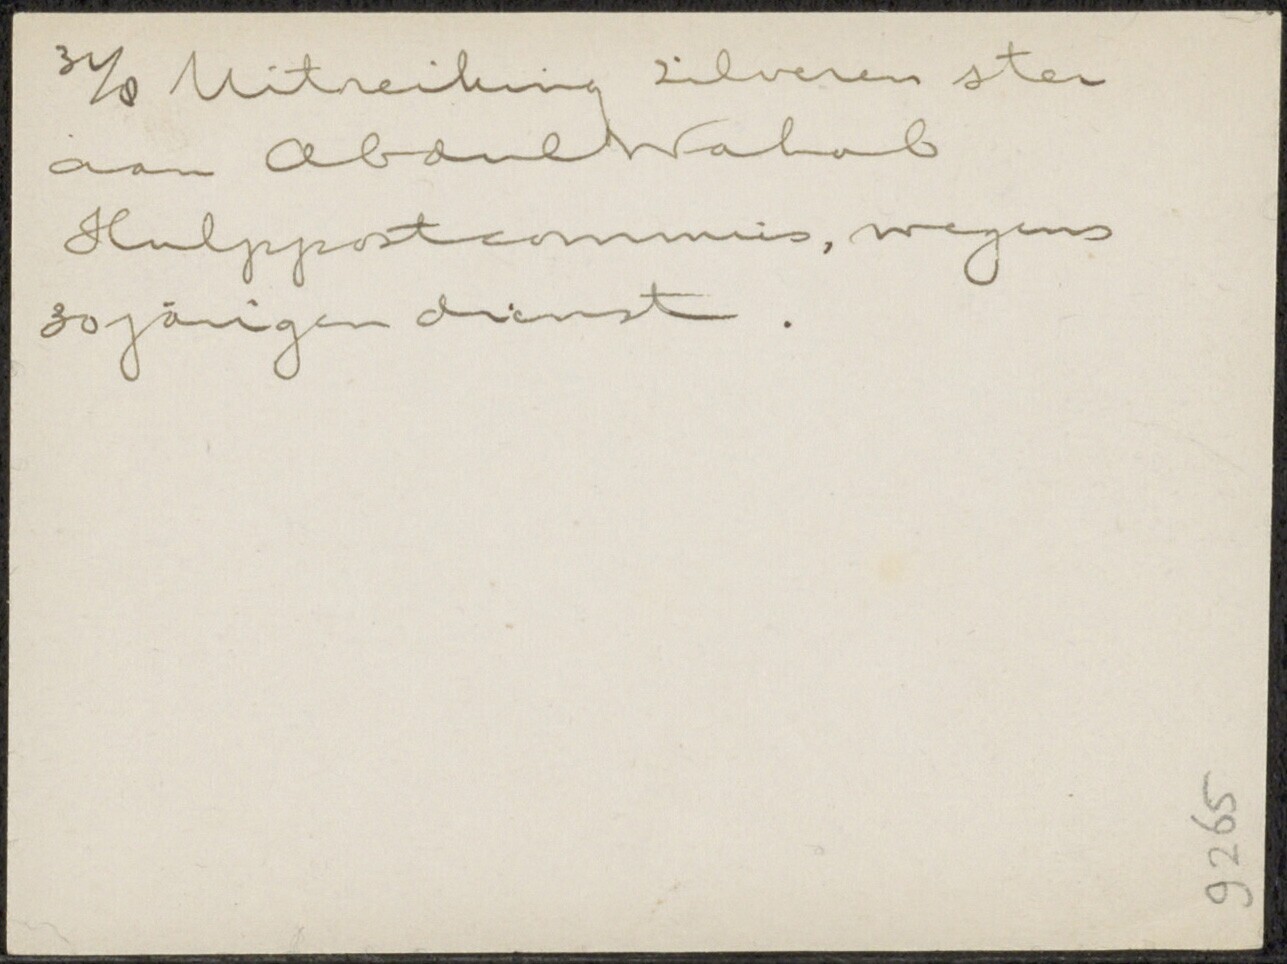 31/8 Uitreiking zilveren ster
aan Abdul Wahab
Hulppostcommies, wegens
30 jarigen dienst.
9265